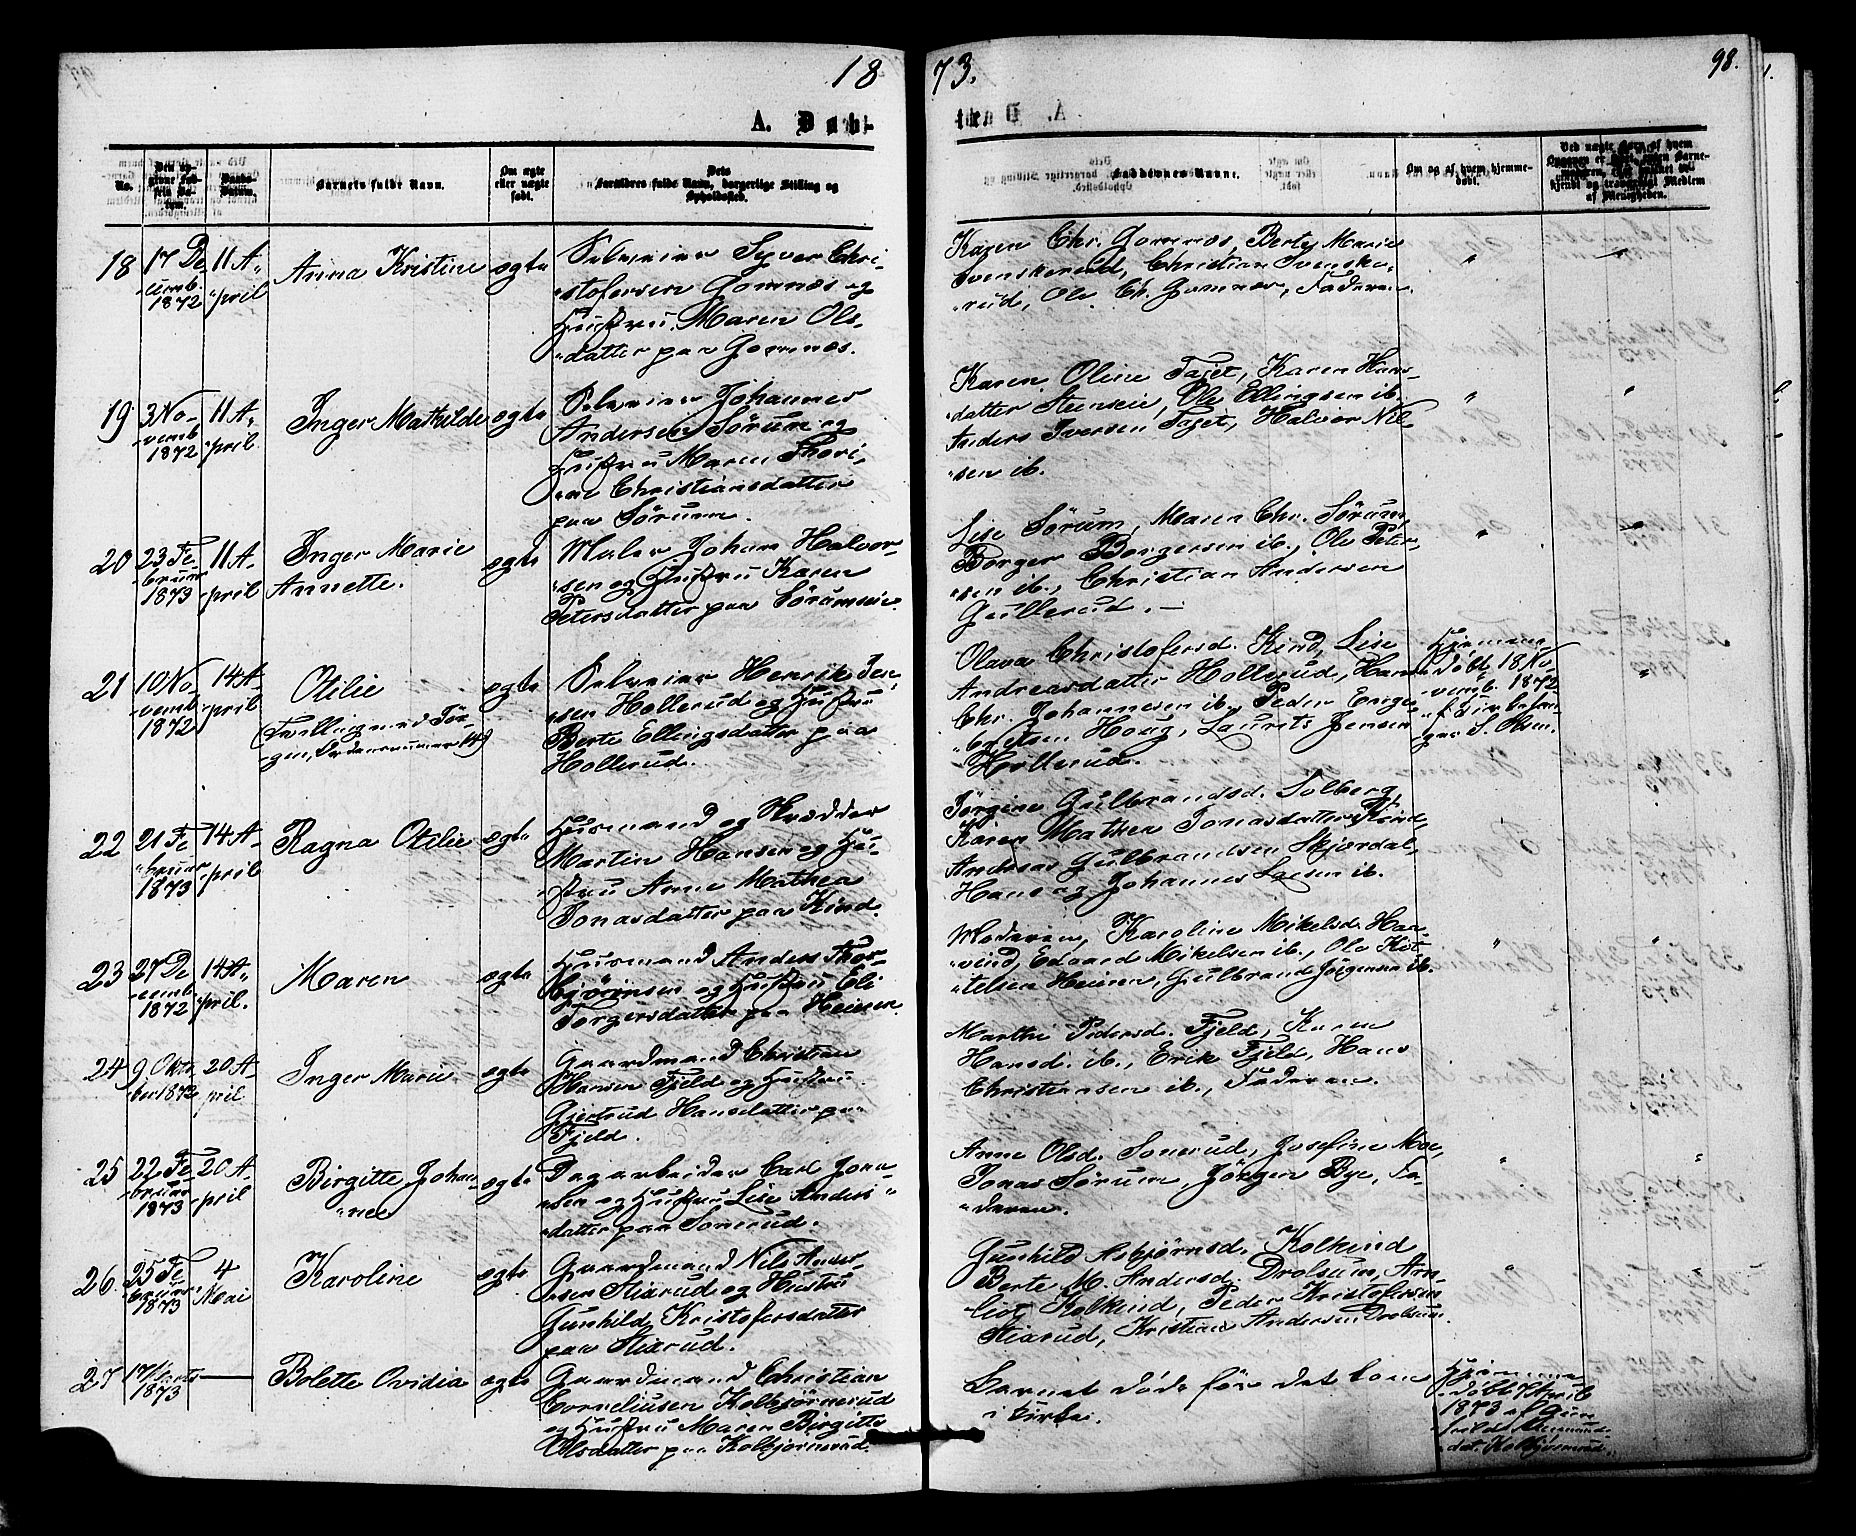 1873.
98.
A. Døbte
No.
Barnets fulde Navn.
Om ægte
eller uægte
født.
Forældres fulde Navn, borgerlige Stilling og
Opholdssted.
Faddernes Navne.
Om og af hvem hjemme-
døbt.
18
17 De
cemb.
1872
11 A-
pril
Anna Kristine
ægte
Selveier Syver Chri-
stofersen Gomnæs og
Hustru Maren Ols-
datter paa Gomnæs.
Karen Chr. Gomnæs, Berte Marie
Svenskerud, Christian Svenske-
rud, Ole Ch. Gomnæs, Faderen.
19
3 No-
vemb.
1872
11 A-
pril
Inger Mathilde
ægte
Selveier Johannes
Andersen Sørum og
Hustru Maren Thori-
ne Christiansdatter
paa Sørum.
Karen Oline Taget, Karen Hans-
datter Steinseie, Ole Ellingsen ib.
Anders Iversen Taget, Halvor Nil-
sen ib.
20
23 Fe-
bruar
1873
11 A-
pril
Inger Marie
Annette.
ægte
Maler Johan Halvor-
sen og Hustru Karen
Petersdatter paa Sørumseie.
Lise Sørum, Maren Chr. Sørum,
Borger Borgersen ib., Ole Peter-
sen ib., Christian Andersen
Gullerud.
21
10 No-
vemb.
1872
14 A-
pril
Otilie
(Tvilling med Jør-
gen, Ordensnummer 14)
ægte
Selveier Henrik Jen-
sen Hollerud og Hustru
Berte Ellingsdatter paa
Hollerud.
Olava Christofersd. Kind, Lise
Andreasdatter Hollerud, Hans
Chr. Johannesen ib., Peder Enge-
bretsen Houg, Laurits Jensen
Hollerud.
Hjemme-
døbt 18 No-
vemb. 1872
22
21 Fe-
bruar
1873
14 A-
pril
Ragna Otilie
ægte
Husmand og Skrædder
Martin Hansen og Hu-
stru Anne Mathea
Jonasdatter paa Kind.
Jørgine Gulbrandsd. Solberg,
Karen Mathea Jonasdatter Kind,
Andreas Gulbrandsen Skjærdal,
Hans og Johannes Larsen ib.
23
27 De-
cemb.
1872
14 A-
pril.
Maren
ægte
Husmand Anders Thor-
bjørnsen og Hustru Eli
Torgersdatter paa Heieren
Moderen, Karoline Mikelsd. Har-
vind, Edvard Mikelsen ib., Ole Ket-
telsen Heieren, Gulbrand Jørgensen ib.
24
9 Okto-
ber 1872
20 A-
pril
Inger Marie
ægte
Gaardmand Christian
Hansen Fjeld og Hustru
Gjertrud Hansdatter paa
Fjeld.
Marthe Pedersd. Fjeld, Karen
Hansd. ib., Erik Fjeld, Hans
Christiansen ib., Faderen.
25
22 Fe-
bruar
1873
20 A-
pril
Birgitte Johan-
nee
ægte
Dagarbeider Carl Jona-
sen og Hustru Lise Anders-
datter paa Sonerud.
Anne Olsd. Sonerud, Josefine Moe,
Jonas Sørum, Jørgen Bye, Fa-
deren.
26.
25 Fe-
bruar
1873
4
Mai
Karoline
ægte
Gaardmand Nils Ander-
sen Stiarud og Hustru
Gunhild Kristofersdatter
paa Stiarud.
Gunhild Asbjørnsd. Kolkind
Berte M. Andersd. Drolsum, Arn-
Kolkind, Peder Kristofersen
Stiarud, Kristian Andersen Drolsum.
27
17 Marts
1873
Bolette Ovidia
ægte
Gaardmand Christian
Corneliusen Kolbjørnerud
og Hustru Maren Birgitte
Olsdatter paa Kolbjørnerud.
Barnet døde før det kom
i Kirke.
Hjemme-
døbt 7 April
1873 af Gun-
hild
Kolbjørnerud.